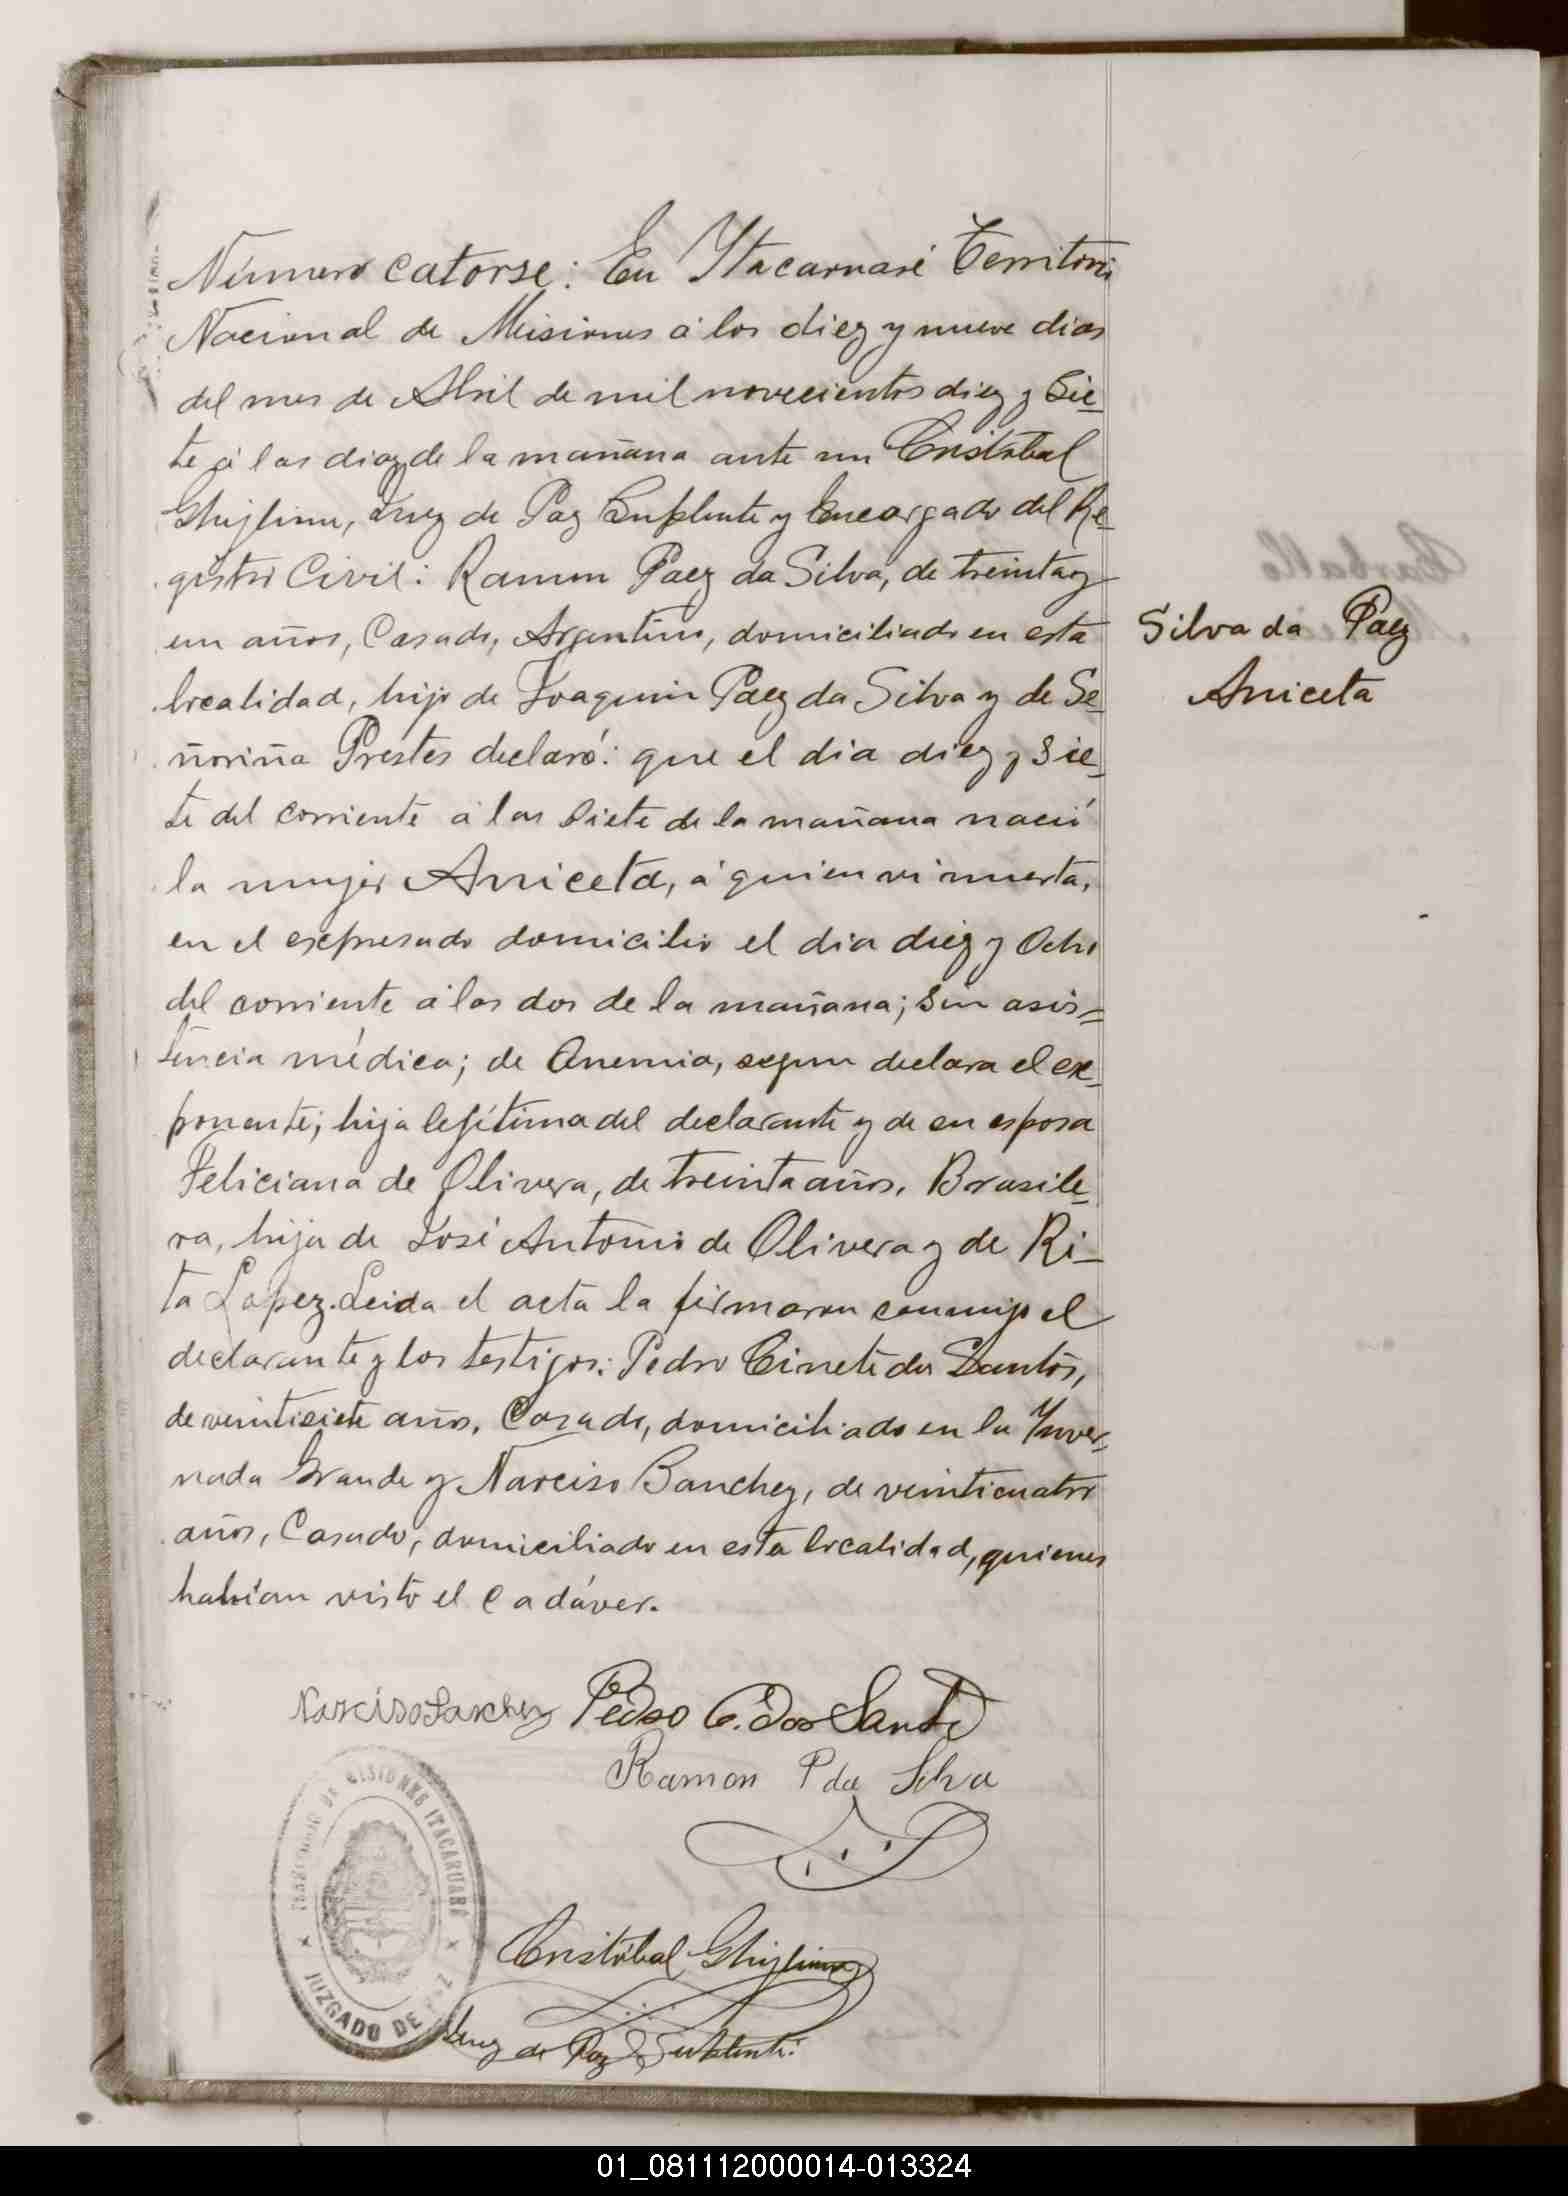 Número catorse: En Ytacaruaré Territorio
Nacional de Misiones á los diez y nueve dias
del mes de Abril de mil novecientos diez y Sie-
te á las diez de la mañana ante mi Cristóbal
Ghiglione, Juez de Paz Suplente y Encargado del Re-
gistro Civil: Ramon Paez da Silva, de treinta y
un años, Casado, Argentino, domiciliado en esta
localidad, hijo de Joaquin Paez da Silva y de Se-
ñoriña Prestes declaró: que el dia diez y sie-
te del corriente á las Siete de la mañana nació
la mujer Aniceta, á quien vi muerta,
en el expresado domicilio el dia diez y Ocho
del corriente á las dos de la mañana; sin asis=
tencia médica; de Anemia, segun declara el ex-
ponente; hija legítima del declarante y de su esposa
Feliciana de Olivera, de treinta años, Brasile-
ra, hija de José Antonio de Olivera y de Ri-
ta Lopez. Leida el acta la firmaron conmigo el
declarante y los testigos: Pedro dos Santos,
de veintisiete años, Casado, domiciliado en la Ynver-
nada Grande y Narciso Sanchez, de veinticuatro
años, Casado, domiciliado en esta localidad, quienes
habian visto el cadáver.
Silva da Paez
Aniceta
Narciso Sanchez Pedro C. dos Santos
Ramon P da Silva
Cristóbal Ghiglione
Juez de Paz Suplente.
TERRITORIO DE MISIONES ITACARUARÉ
JUZGADO DE PAZ
01_081112000014-013324